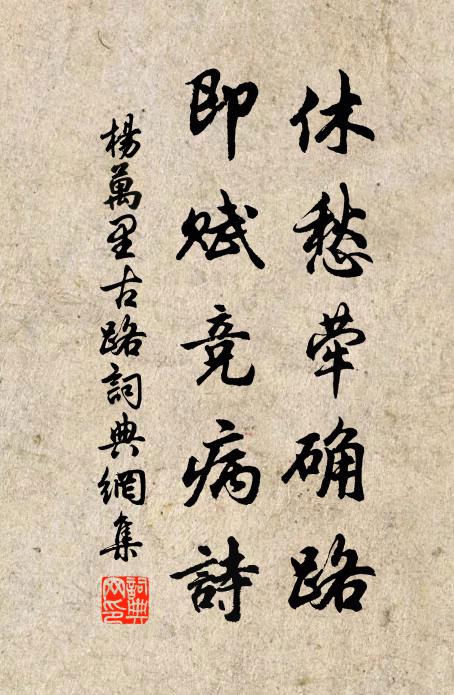 休愁荦确路
即赋竞病詩
楊萬里古路詞典網集
詞典网印